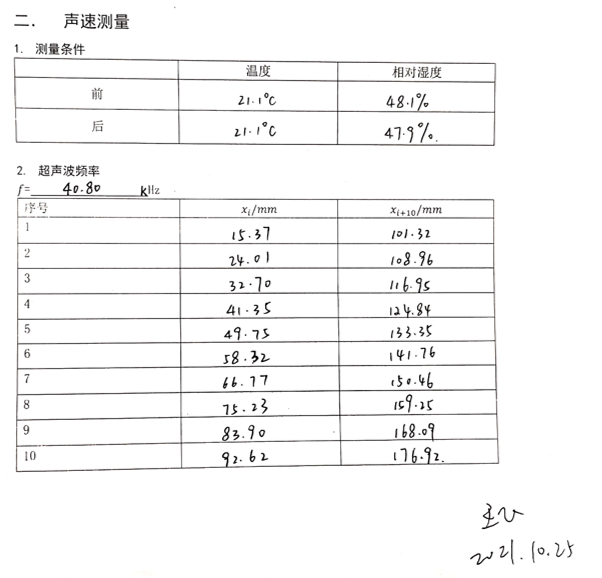 二. 声速测量
1. 测量条件
温度 相对湿度
前 21.1°C 48.1%
后 21.1°C 47.9%.
2. 超声波频率
f= 40.80 kHz
序号 xᵢ/mm xᵢ₊₁₀/mm
1 15.37 101.32
2 24.01 108.96
3 32.70 116.95
4 41.35 124.84
5 49.75 133.35
6 58.32 141.76
7 66.77 150.46
8 75.23 159.25
9 83.90 168.09
10 92.62 176.92.
2021.10.25